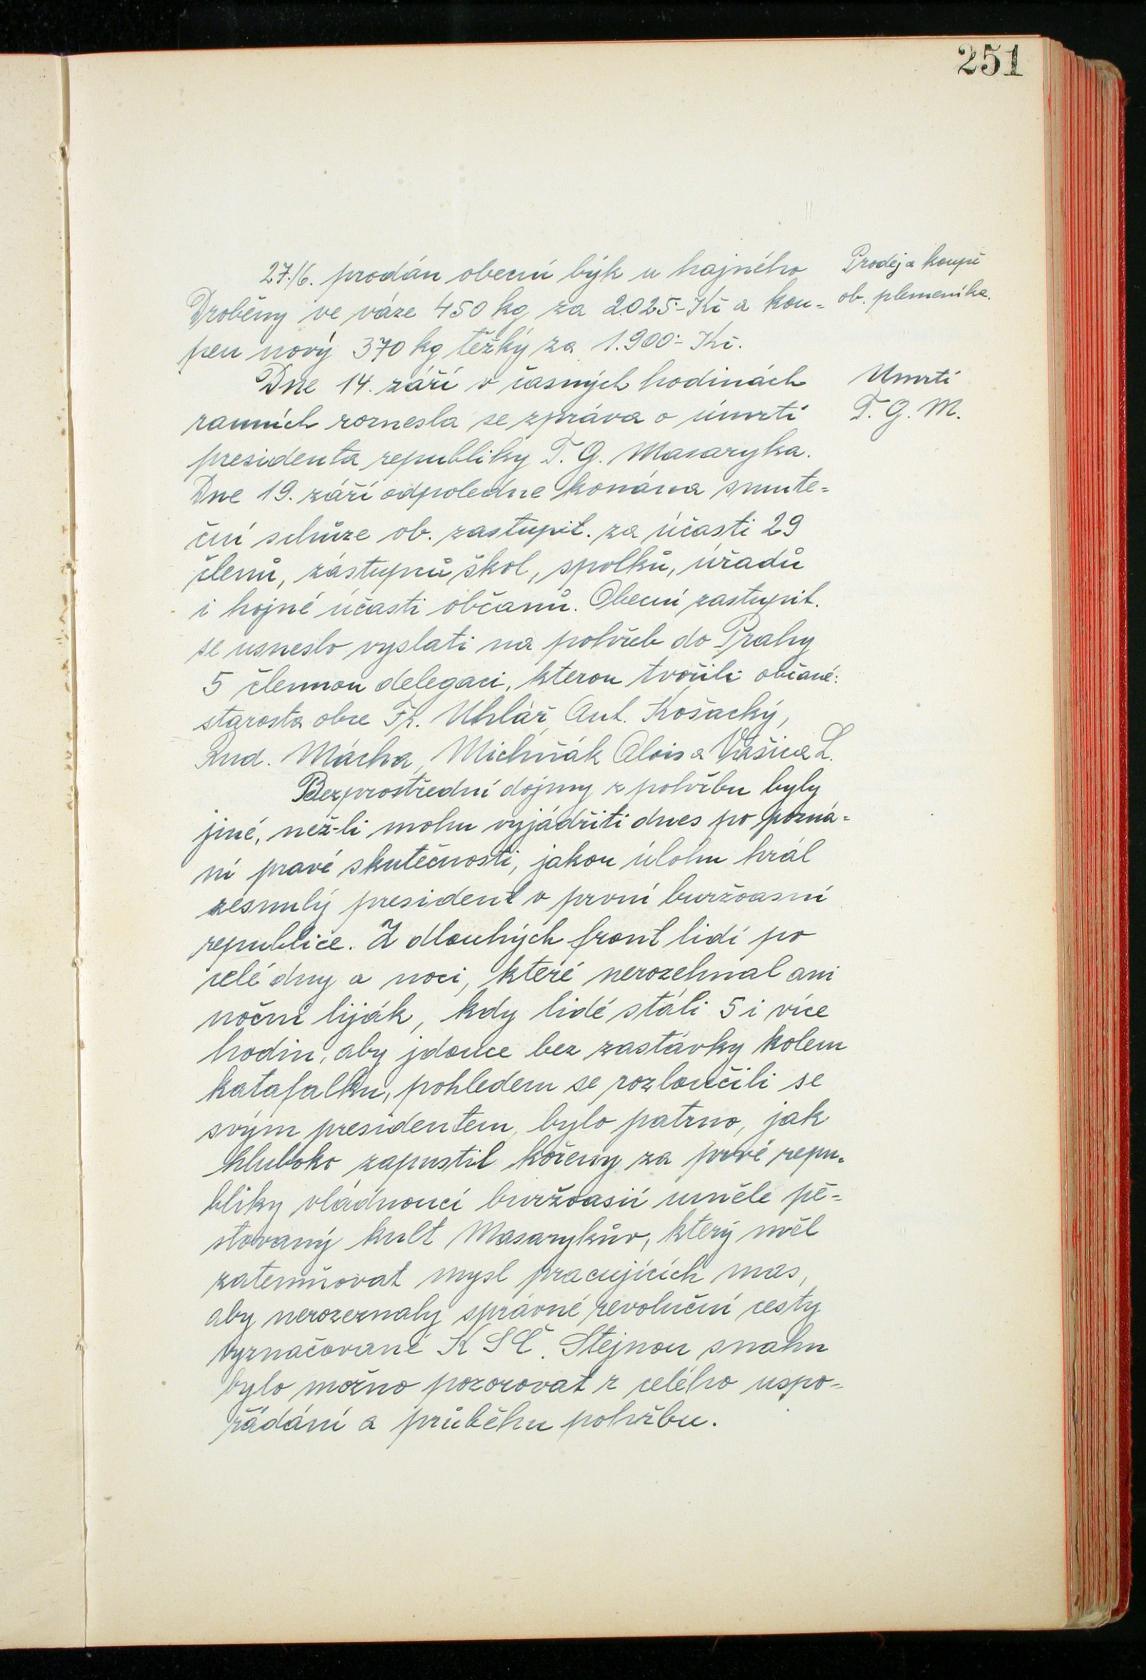 251
27./6. prodán obecní býk u hajného
Drobény ve váze 450 kg za 2025-Kč a kou-
pen nový 370 kg těžký za 1.900- Kč.
Prodej a koupě
ob. plemeníka.
Dne 14. září v časných hodinách
ranních roznesla se zpráva o úmrtí
presidenta republiky T. G. Masaryka.
Úmrtí
T. G. M.
Dne 19. září odpoledne konána smute-
ční schůze ob. zastupit. za účasti 29
členů, zástupců škol, spolků, úřadů
i hojné účasti občanů. Obecní zastupit.
se usneslo vyslati na pohřeb do Prahy
5 člennou delegaci, kterou tvořili občané:
starosta obce Fr. Uhlář, Ant. Košacký,
Rud. Mácha, Michňák Alois a Vašica L.
Bezprostřední dojmy z pohřbu byly
jiné, než-li mohu vyjádřiti dnes po pozná-
ní pravé skutečnosti, jakou úlohu hrál
zesnulý president v první buržoasní
republice. Z dlouhých front lidí po
celé dny a noci, které nerozehnal ani
noční liják, kdy lidé stáli 5 i více
hodin, aby jdouce bez zastávky kolem
katafalku, pohledem se rozloučili se
svým presidentem, bylo patrno, jak
hluboko zapustil kořeny za prvé repu-
bliky vládnoucí buržoasií uměle pě-
stovaný kult Masarykův, který měl
zatemňovat mysl pracujících mas,
aby nerozeznaly správné revoluční cesty
vyznačované K S Č. Stejnou snahu
bylo možno pozorovat z celého uspo-
řádání a průběhu pohřbu.